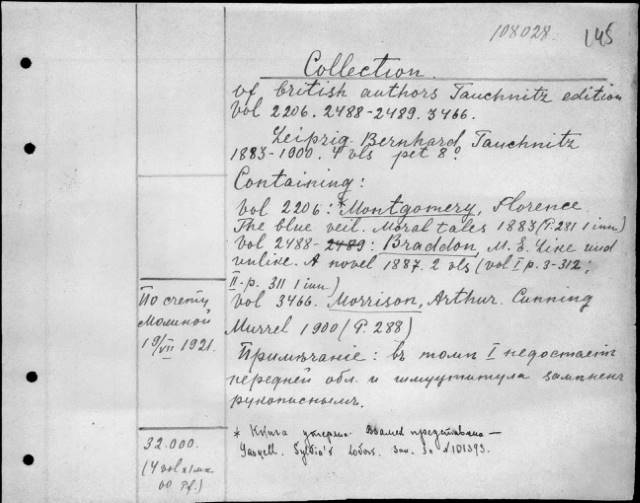 108028. 145
Collection.
of british authors Tauchnitz edition
vol 2206. 2488-2489. 3466.
Leipzig. Bernhard Tauchnitz
1883-1900. 4 vls pet 8°
Containing:
Vol 2206: *Montgomery, Florence
The blue veil. Moral tales 1883 (P. 281 1 inn)
Vol 2488-2489: Braddon, M. E. Like and
unlike. A novel 1887. 2 vls (vol I p. 3-312;
II - p. 311 1 inn)
Vol 3466. Morrison, Arthur. Cunning
Murrel 1900 (P. 288)
Примѣчаніе: въ томѣ I недостаетъ
передней обл. и шмуцтитула замѣнен
рукописнымъ.
* Книга утеряна. Взамен представлено -
Gaskell. Sylvia's lovers. Зак. №101393.
По счету
Молиной
19/VII 1921.
32.000.
(4 vol